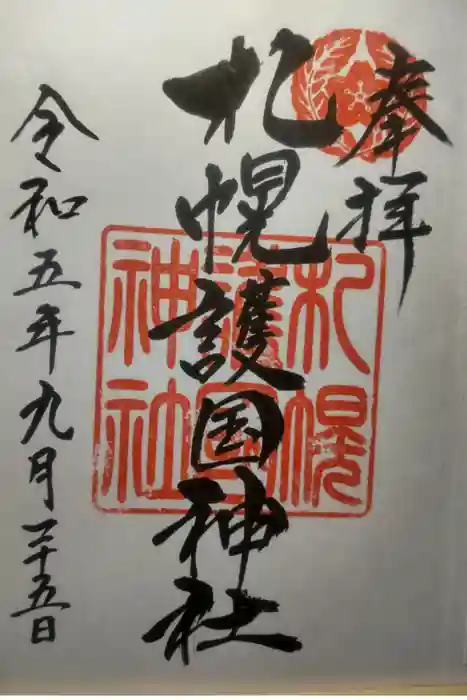 奉拝
札幌護国神社
札幌
護国
神社
令和五年九月二十五日